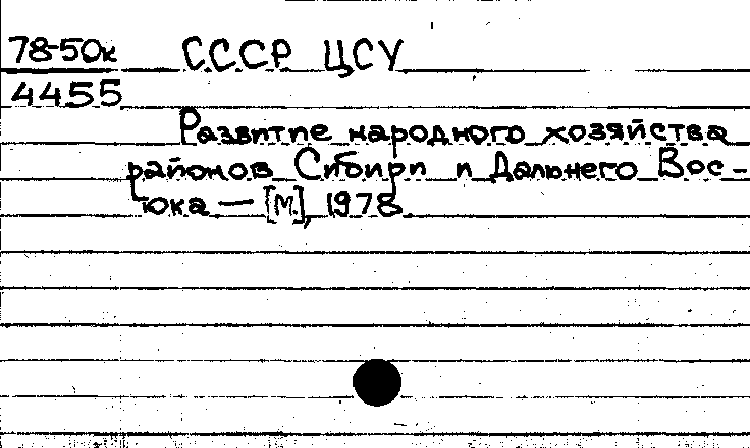 78-50к СССР ЦСУ
4455
Развитие народного хозяйства
районов Сибири и Дальнего Вос-
тока — [М.], 1978.